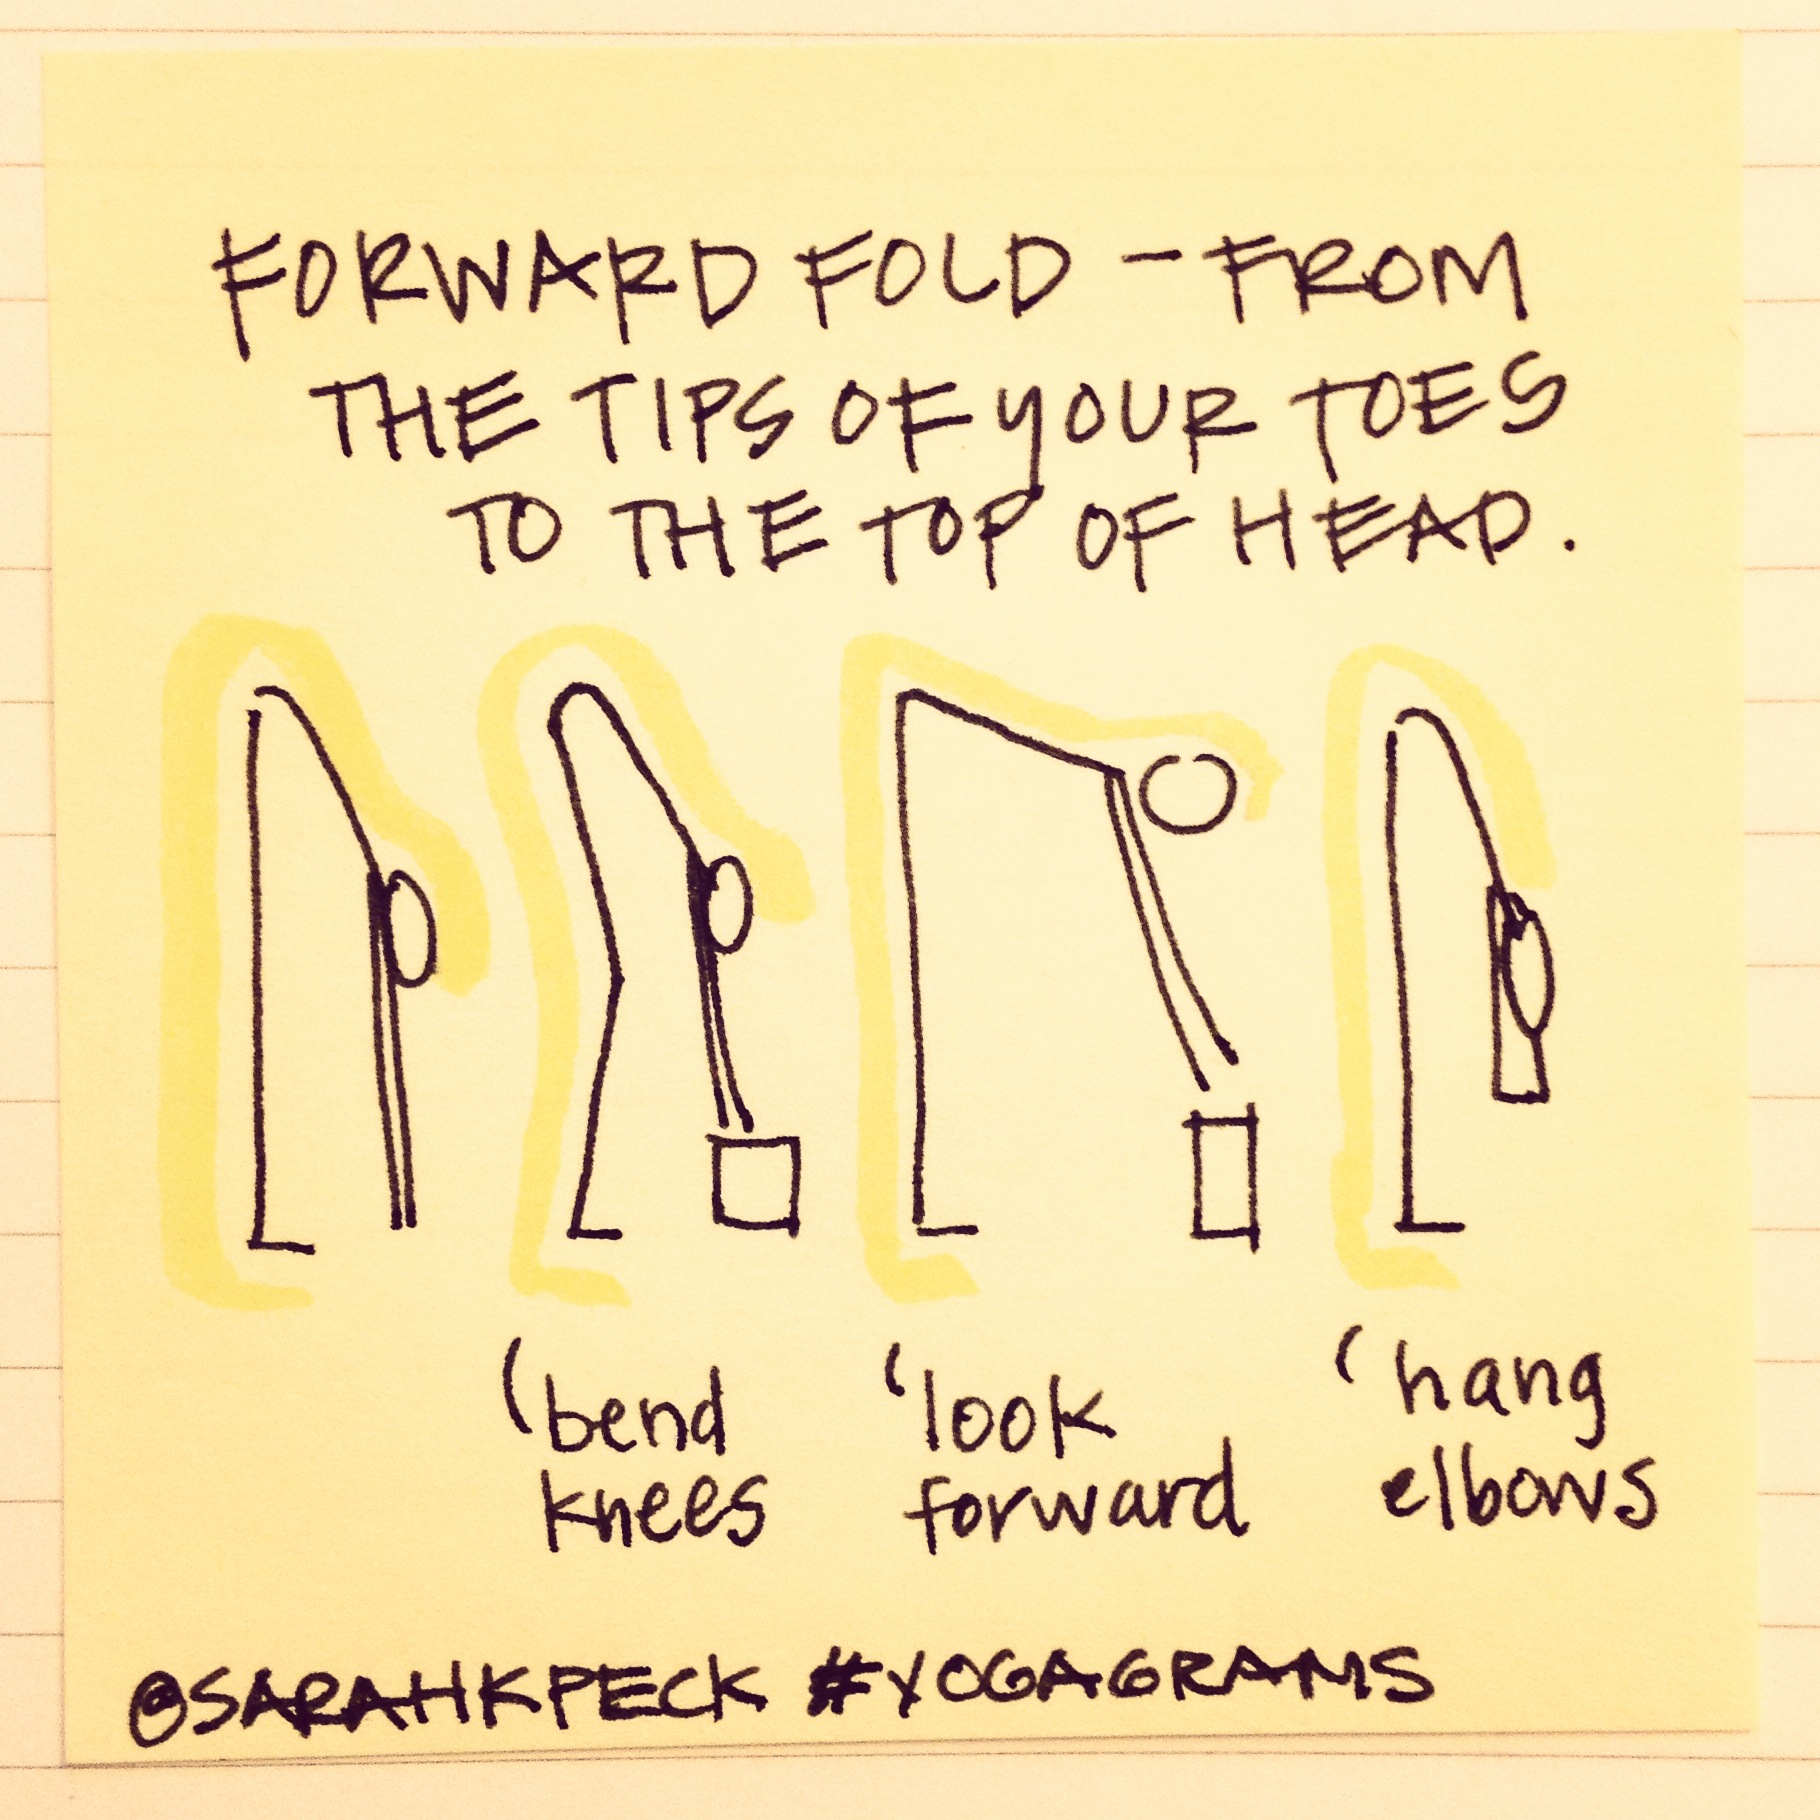 FORWARD FOLD - FROM
THE TIPS OF YOUR TOES
TO THE TOP OF HEAD.
'bend
knees
'look
forward
'hang
elbows
@SARAHKPECK #YOGAGRAMS